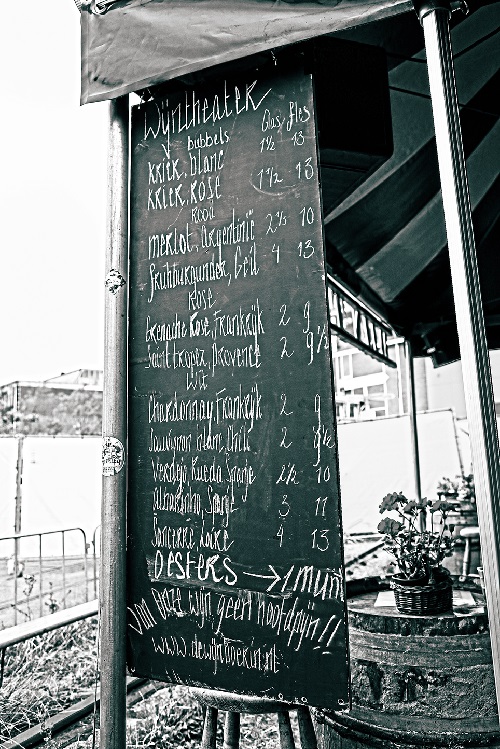 Wijntheater
bubbels Glas fles
Kriek, blanc 1½ 13
Kriek, Rose 1½ 13
Rood
Merlot, Argentinië 2½ 10
Frühburgunder, Geil 4 13
Rose
Grenache Rose, Frankrijk 2 9
Saint Tropez, Provence 2 9½
Wit
Chardonnay, Frankrijk 2 9
Sauvignon blanc, Chili 2
Verdejo, Rueda, Spanje 2½ 10
Spanje 3 11
Sancerre, Loire 4 13
OESTERS → 1 munt
Van deze wijn geen hoofdpijn!!